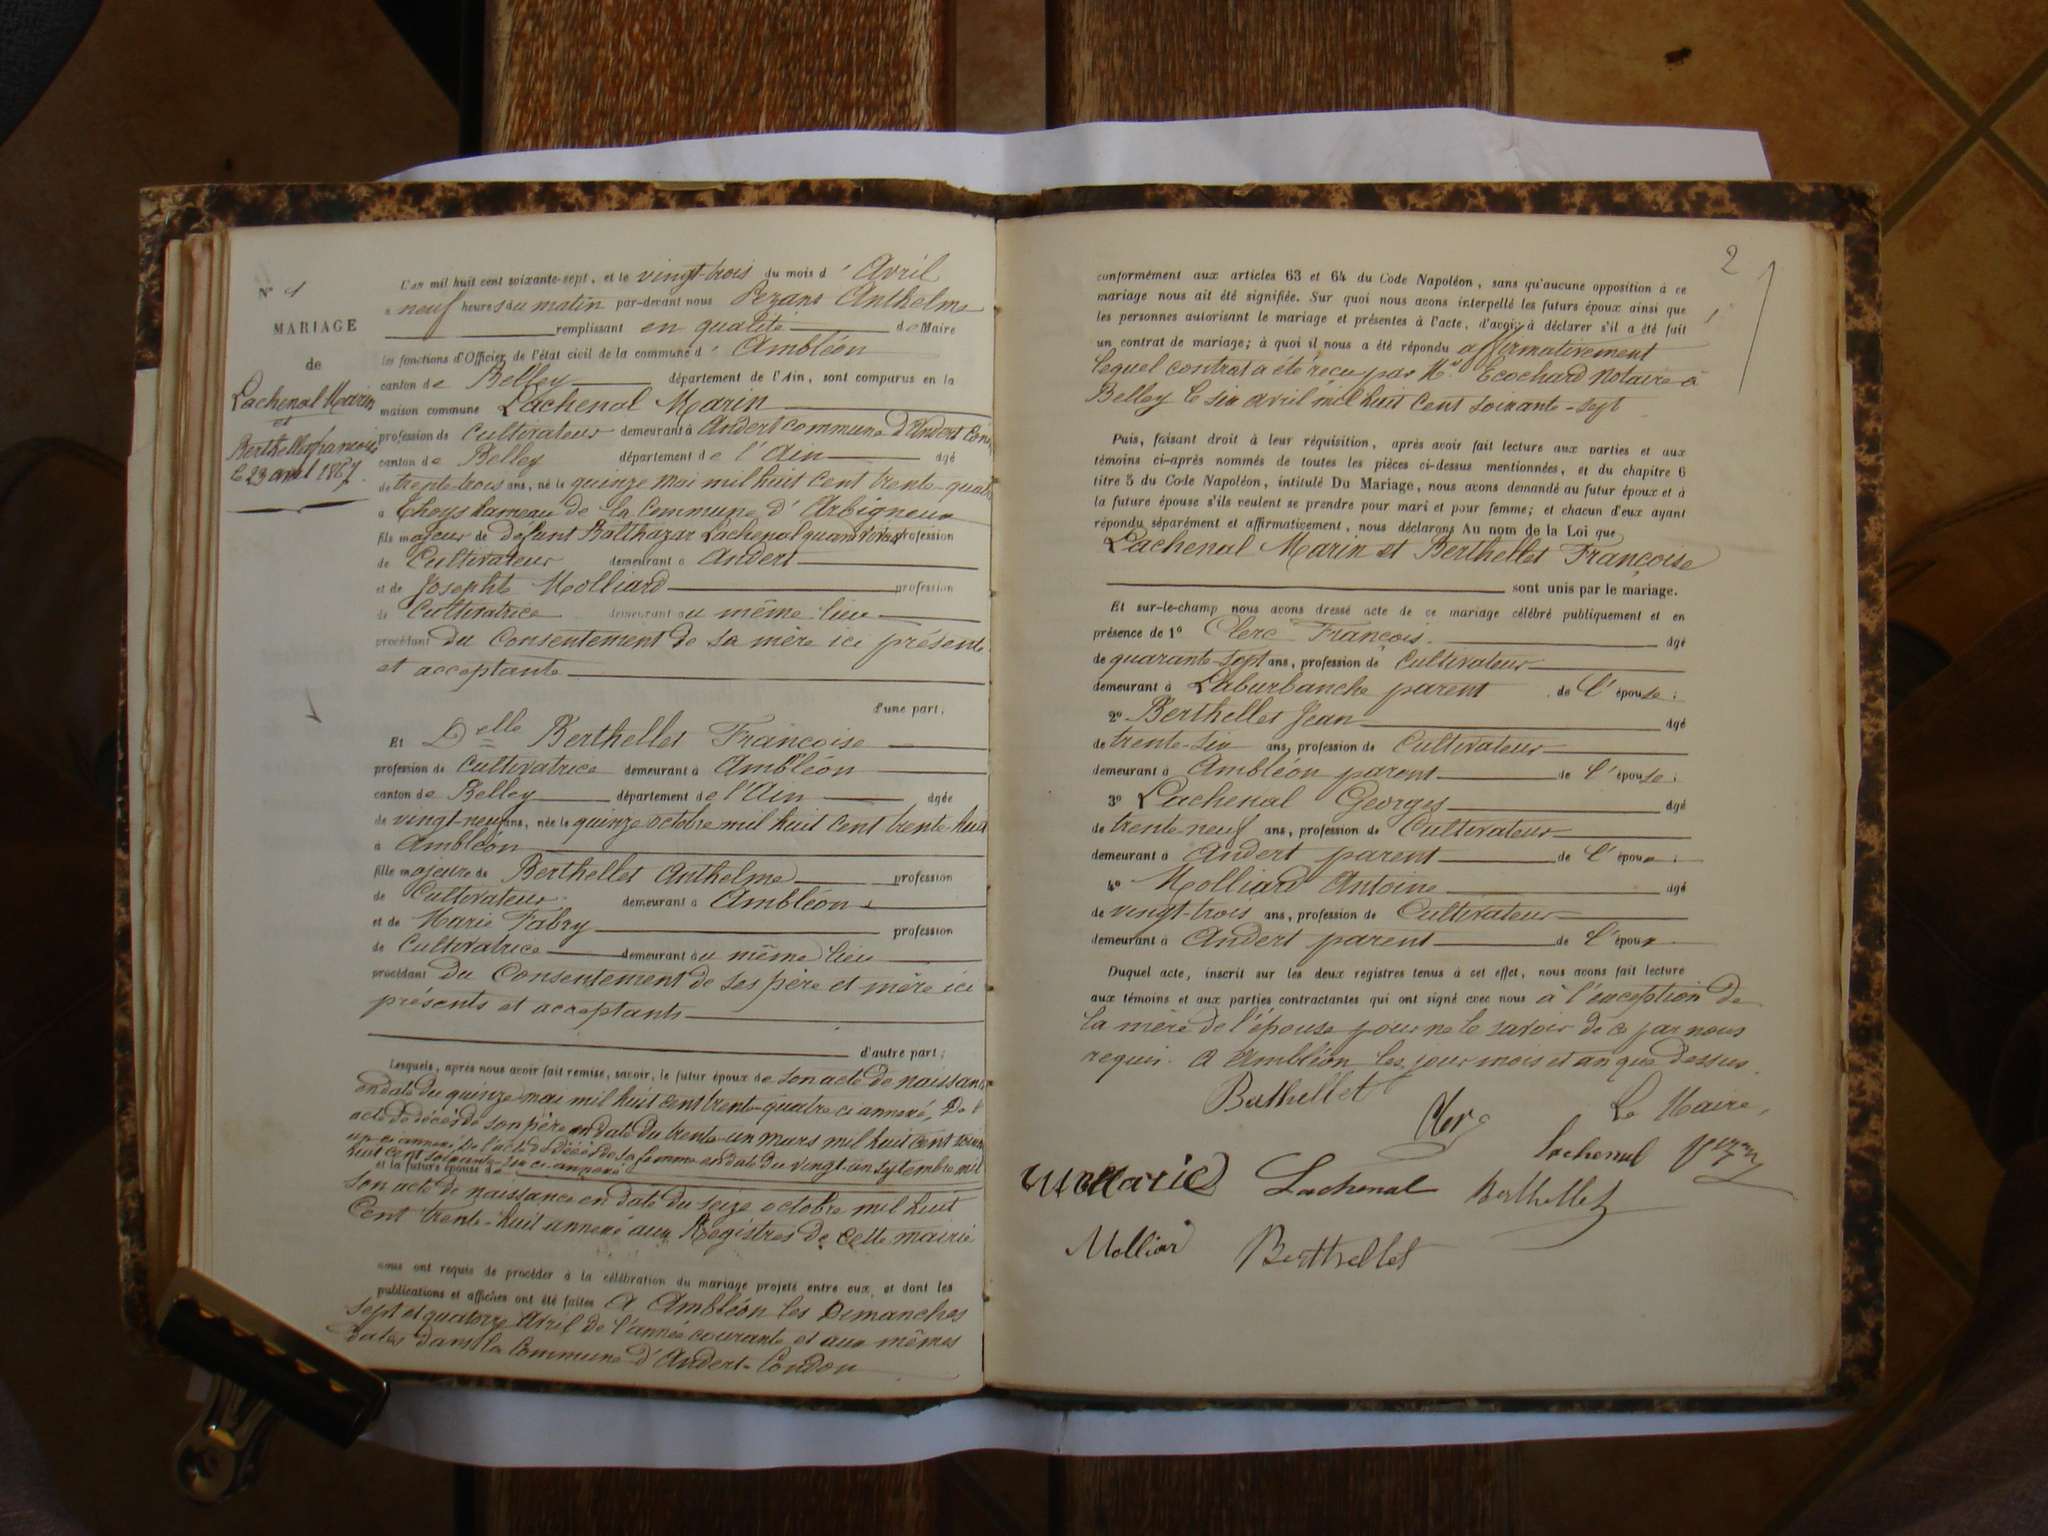 N° 1
MARIAGE
de
Lachenal Marin
et
Berthellet françoise
le 23 avril 1867.
L'an mil huit cent soixante-sept, et le vingt-trois du mois d'Avril
a neuf heures du matin par-devant nous Pezans Anthelme
remplissant en qualité de Maire
les fonctions d'Officier de l'état civil de la commune d'Ambléon
canton de Belley département de l'Ain, sont comparus en la
maison commune Lachenal Marin
profession de Cultivateur demeurant à Andert commune d'Andert Con
canton de Belley département de l'Ain âgé
de trente-trois ans, né le quinze mai mil huit cent trente-quatre
a Thoys hameau de la Commune d'Arbignieu
fils majeur de défunt Balthazar Lachenal quand vivait profession
de Cultivateur demeurant a Andert
et de Josephte Molliard profession
de Cultivatrice demeurant au même lieu
procédant du Consentement de sa mère ici présente
et acceptante
d'une part;
Et Delle Berthellet Françoise
profession de Cultivatrice demeurant à Ambléon
canton de Belley département de l'Ain âgée
de vingt-neuf ans, née le quinze octobre mil huit cent trente-huit
a Ambléon
fille majeure de Berthellet Anthelme profession
de Cultivateur demeurant a Ambléon
et de Marie Fabry profession
de Cultivatrice demeurant au même lieu
procédant du Consentement de ses père et mère ici
présents et acceptants
d'autre part;
Lesquels, après nous avoir fait remise, savoir, le futur époux de son acte de naissance
en date du quinze mai mil huit cent trente-quatre ci annexé, De l'
acte de décès de son père en date du trente-un mars mil huit cent soixante
un ci annexé De l'acte de décès de sa femme en date du vingt un septembre mil
huit cent soixante-six ci annexé
et la future épouse de
son acte de naissance en date du seize octobre mil huit
Cent trente-huit annexé aux Registres de cette mairie
nous ont requis de procéder à la célébration du mariage projeté entre eux, et dont les
publications et affiches ont été faites A Ambléon les Dimanches
sept et quatorze Avril de l'année courante et aux mêmes
dates dans la Commune d'Andert-Condon
2
conformément aux articles 63 et 64 du Code Napoléon, sans qu'aucune opposition à ce
mariage nous ait été signifiée. Sur quoi nous avons interpellé les futurs époux ainsi que
les personnes autorisant le mariage et présentes à l'acte, d'avoir à déclarer s'il a été fait
un contrat de mariage; à quoi il nous a été répondu affirmativement
lequel contrat a été reçu par Me. Ecochard Notaire à
Belley le six avril mil huit Cent soixante-sept
Puis, faisant droit à leur réquisition, après avoir fait lecture aux parties et aux
témoins ci-après nommés de toutes les pièces ci-dessus mentionnées, et du chapitre 6
titre 5 du Code Napoléon, intitulé Du Mariage, nous avons demandé au futur époux et à
la future épouse s'ils veulent se prendre pour mari et pour femme; et chacun d'eux ayant
répondu séparément et affirmativement, nous déclarons Au nom de la Loi que
Lachenal Marin et Berthellet Françoise
sont unis par le mariage.
Et sur-le-champ nous avons dressé acte de ce mariage célébré publiquement et en
présence de 1° Clerc François. âgé
de quarante-sept ans, profession de Cultivateur
demeurant à Laburbanche parent de l'épouse;
2° Berthellet Jean âgé
de trente-six ans, profession de Cultivateur
demeurant à Ambléon parent de l'épouse;
3° Lachenal Georges âgé
de trente-neuf ans, profession de Cultivateur
demeurant à Andert parent de l'époux;
4° Molliard Antoine âgé
de vingt-trois ans, profession de Cultivateur
demeurant à Andert parent de l'époux
Duquel acte, inscrit sur les deux registres tenus à cet effet, nous avons fait lecture
aux témoins et aux parties contractantes qui ont signé avec nous à l'exception de
la mère de l'épouse pour ne le savoir de ce par nous
requis. A Ambléon les jour mois et an que dessus.
Berthellet
Clerc
Le Maire,
Lachenal
Lachenal
Berthellet
Molliar
Berthellet